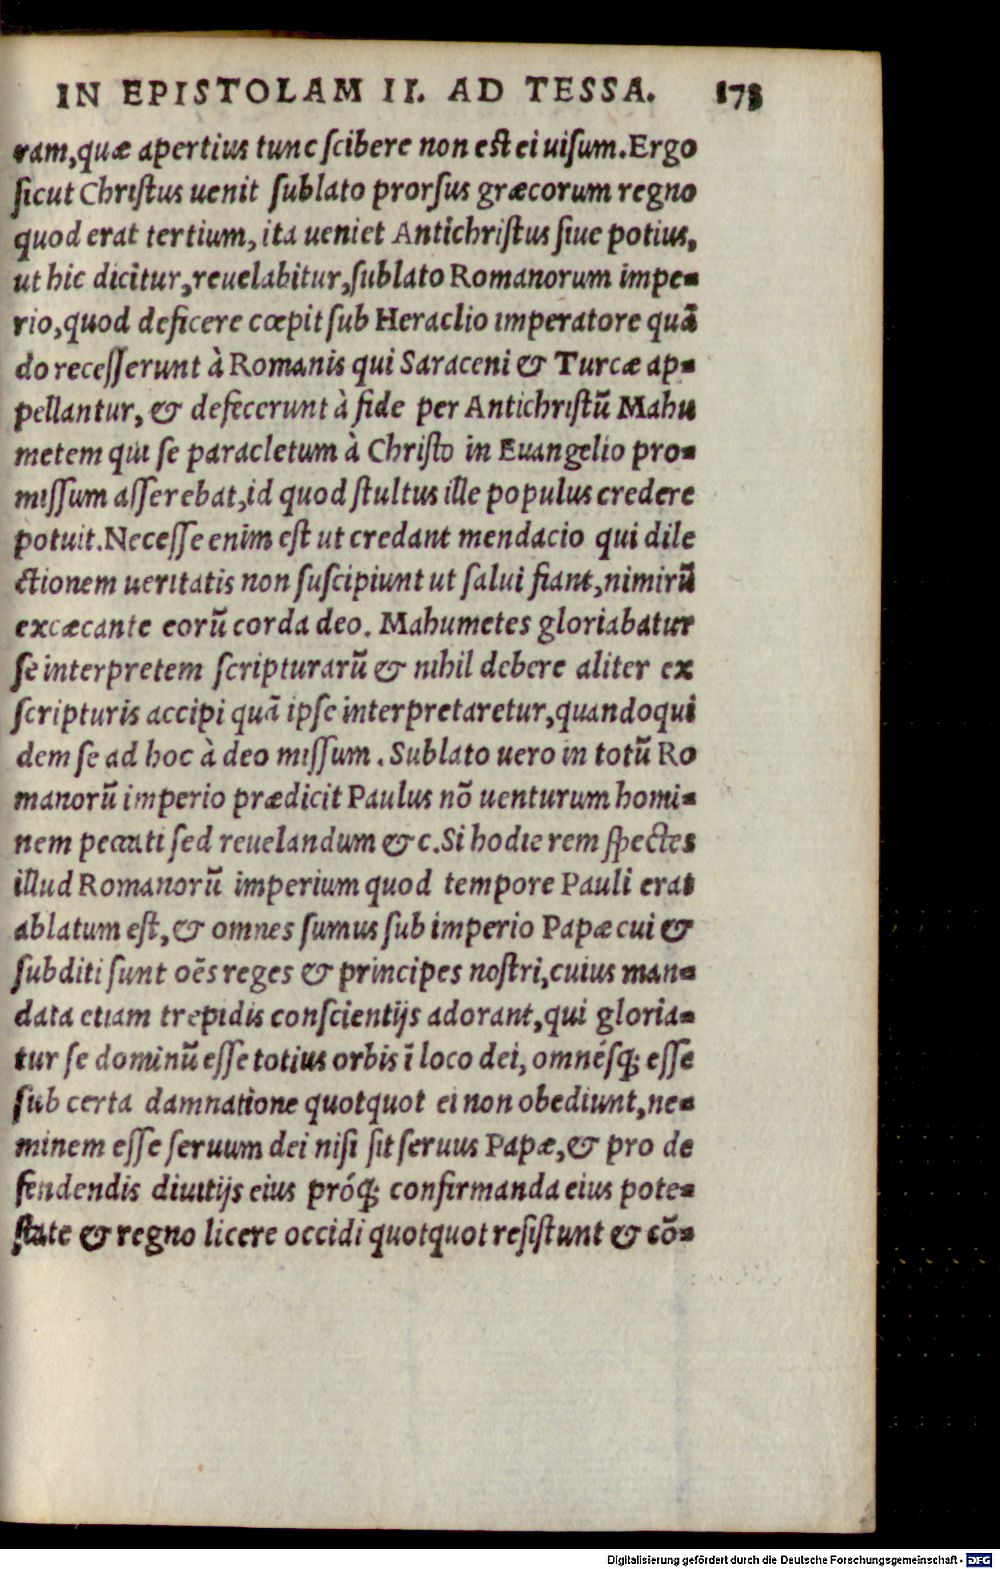 IN EPISTOLAM II. AD TESSA. 173
ram,quæ apertius tunc scibere non est ei uisum.Ergo
sicut Christus uenit sublato prorsus græcorum regno
quod erat tertium, ita ueniet Antichristus siue potius,
ut hic dicitur,reuelabitur,sublato Romanorum impe-
rio,quod deficere cœpit sub Heraclio imperatore quã
do recesserunt à Romanis qui Saraceni & Turcæ ap-
pellantur, & defecerunt à fide per Antichristũ Mahu
metem qui se paracletum à Christo in Euangelio pro-
missum asserebat,id quod stultus ille populus credere
potuit.Necesse enim est ut credant mendacio qui dile
ctionem ueritatis non suscipiunt ut salui fiant,nimirũ
excæcante eorũ corda deo. Mahumetes gloriabatur
se interpretem scripturarũ & nihil debere aliter ex
scripturis accipi quã ipse interpretaretur,quandoqui
dem se ad hoc à deo missum. Sublato uero in totũ Ro
manorũ imperio prædicit Paulus nõ uenturum homi-
nem peccati sed reuelandum &c.Si hodie rem spectes
illud Romanorũ imperium quod tempore Pauli erat
ablatum est,& omnes sumus sub imperio Papæ cui &
subditi sunt oẽs reges & principes nostri,cuius man-
data etiam trepidis conscientijs adorant,qui gloria-
tur se dominũ esse totius orbis ĩ loco dei, omnésq; esse
sub certa damnatione quotquot ei non obediunt,ne-
minem esse seruum dei nisi sit seruus Papæ,& pro de
fendendis diuitijs eius próq; confirmanda eius pote-
state & regno licere occidi quotquot resistunt & cõ-
Digitalisierung gefördert durch die Deutsche Forschungsgemeinschaft - DFG